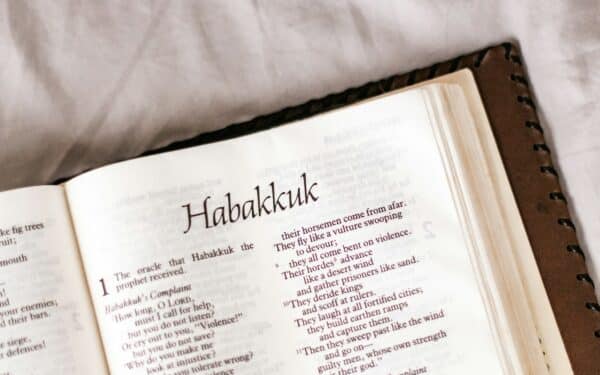 ke fig trees
ruit;
mouth
your enemies,
d their bars.
e siege,
defences!
Habakkuk
1 The oracle that Habakkuk the
prophet received.
Habakkuk's Complaint
²How long, O LORD,
must I call for help,
but you do not listen?
Or cry out to you, "Violence!"
but you do not save?
³Why do you make me
look at injustice?
do you tolerate wrong?
their horsemen come from afar.
They fly like a vulture swooping
to devour;
⁹ they all come bent on violence.
Their hordes' advance
like a desert wind
and gather prisoners like sand.
¹⁰They deride kings
and scoff at rulers.
They laugh at all fortified cities;
they build earthen ramps
and capture them.
¹¹Then they sweep past like the wind
and go on—
guilty men, whose own strength
is their god."